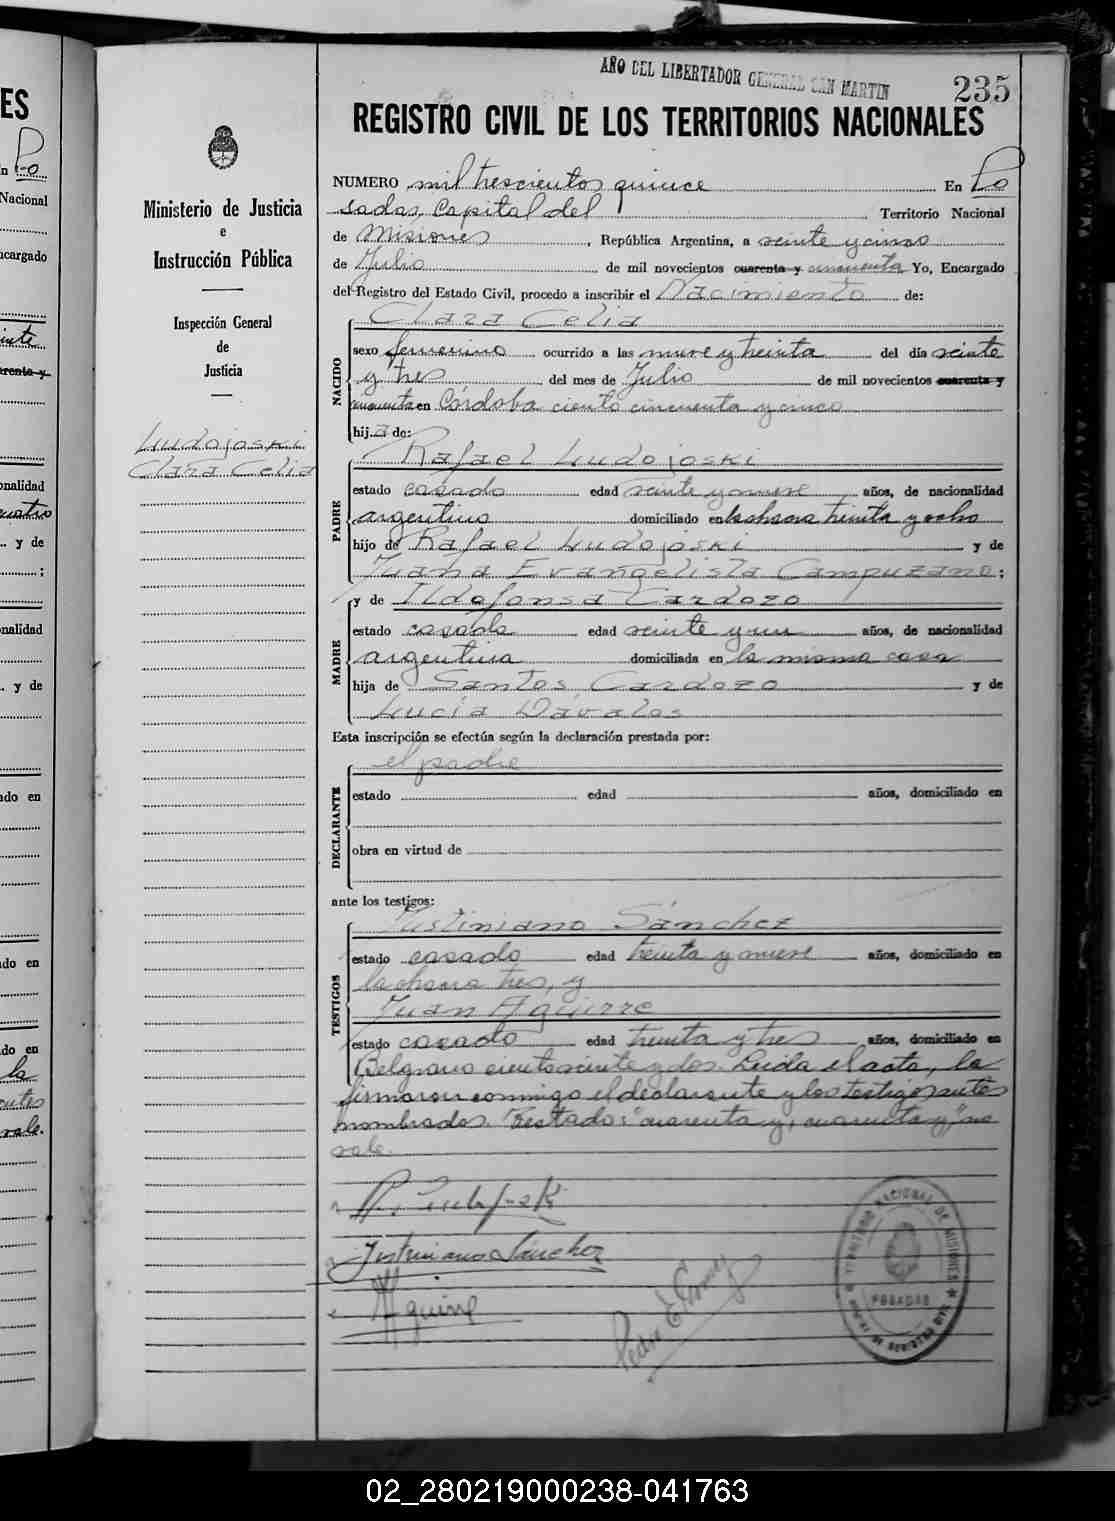 AÑO DEL LIBERTADOR GENERAL SAN MARTIN
235
REGISTRO CIVIL DE LOS TERRITORIOS NACIONALES
Ministerio de Justicia
e
Instrucción Pública
Inspección General
de
Justicia
Ludojoski
Clara Celia
NUMERO mil trescientos quince En Po
sadas, Capital del Territorio Nacional
de Misiones, República Argentina, a veinte y cinco
de Julio de mil novecientos cuarenta y cincuenta Yo, Encargado
del Registro del Estado Civil, procedo a inscribir el Nacimiento de:
NACIDO
Clara Celia
sexo femenino ocurrido a las nueve y treinta del día veinte
y tres del mes de Julio de mil novecientos cuarenta y
cincuenta en Córdoba ciento cincuenta y cinco
hija de:
PADRE
Rafael Ludojoski
estado casado edad veinte y nueve años, de nacionalidad
argentino domiciliado en la chacra treinta y ocho
hijo de Rafael Ludojoski y de
Juana Evangelista Campuzano;
y de Ildofonsa Cardozo
MADRE
estado casada edad veinte y un años, de nacionalidad
argentina domiciliada en la misma casa
hija de Santos Cardozo y de
Lucía Dávalos
Esta inscripción se efectúa según la declaración prestada por:
DECLARANTE
el padre
estado edad años, domiciliado en
obra en virtud de
ante los testigos:
TESTIGOS
Justiniano Sánchez
estado casado edad treinta y nueve años, domiciliado en
la chacra tres, y
Juan Aguirre
estado casado edad treinta y tres años, domiciliado en
Belgrano ciento veinte y dos. Leída el acta, la
firmaron conmigo el declarante y los testigos antes
nombrados. Testados: "cuarenta y, cuarenta y," no
vale.
Justiniano Sánchez
Aguirre
TERRITORIO NACIONAL DE MISIONES
POSADAS
02_280219000238-041763